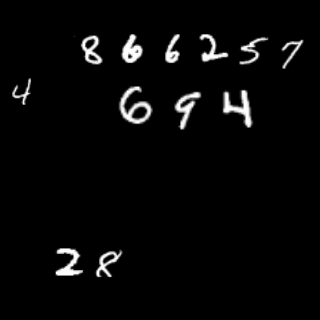 866257
4
694
28